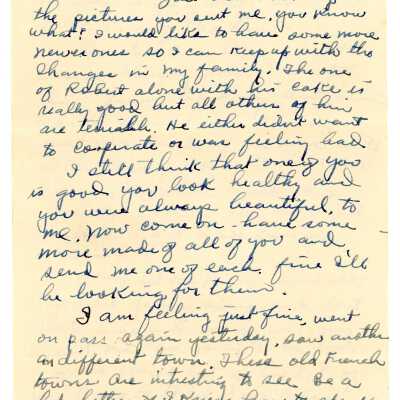 the pictures you sent me, you know
what? I would like to have some more
newer ones so I can keep up with the
changes in my family. The one
of Robert alone with his cake is
really good but all others of him
are terrible. He either didn't want
to cooperate or was feeling bad
I still think that one of you
is good you look healthy and
you were always beautiful, to
me. Now come on - have some
more made of all of you and
send me one of each. fine I'll
be looking for them.
I am feeling just fine, went
on pass again yesterday, saw another
different town. These old French
towns are intresting to see be a